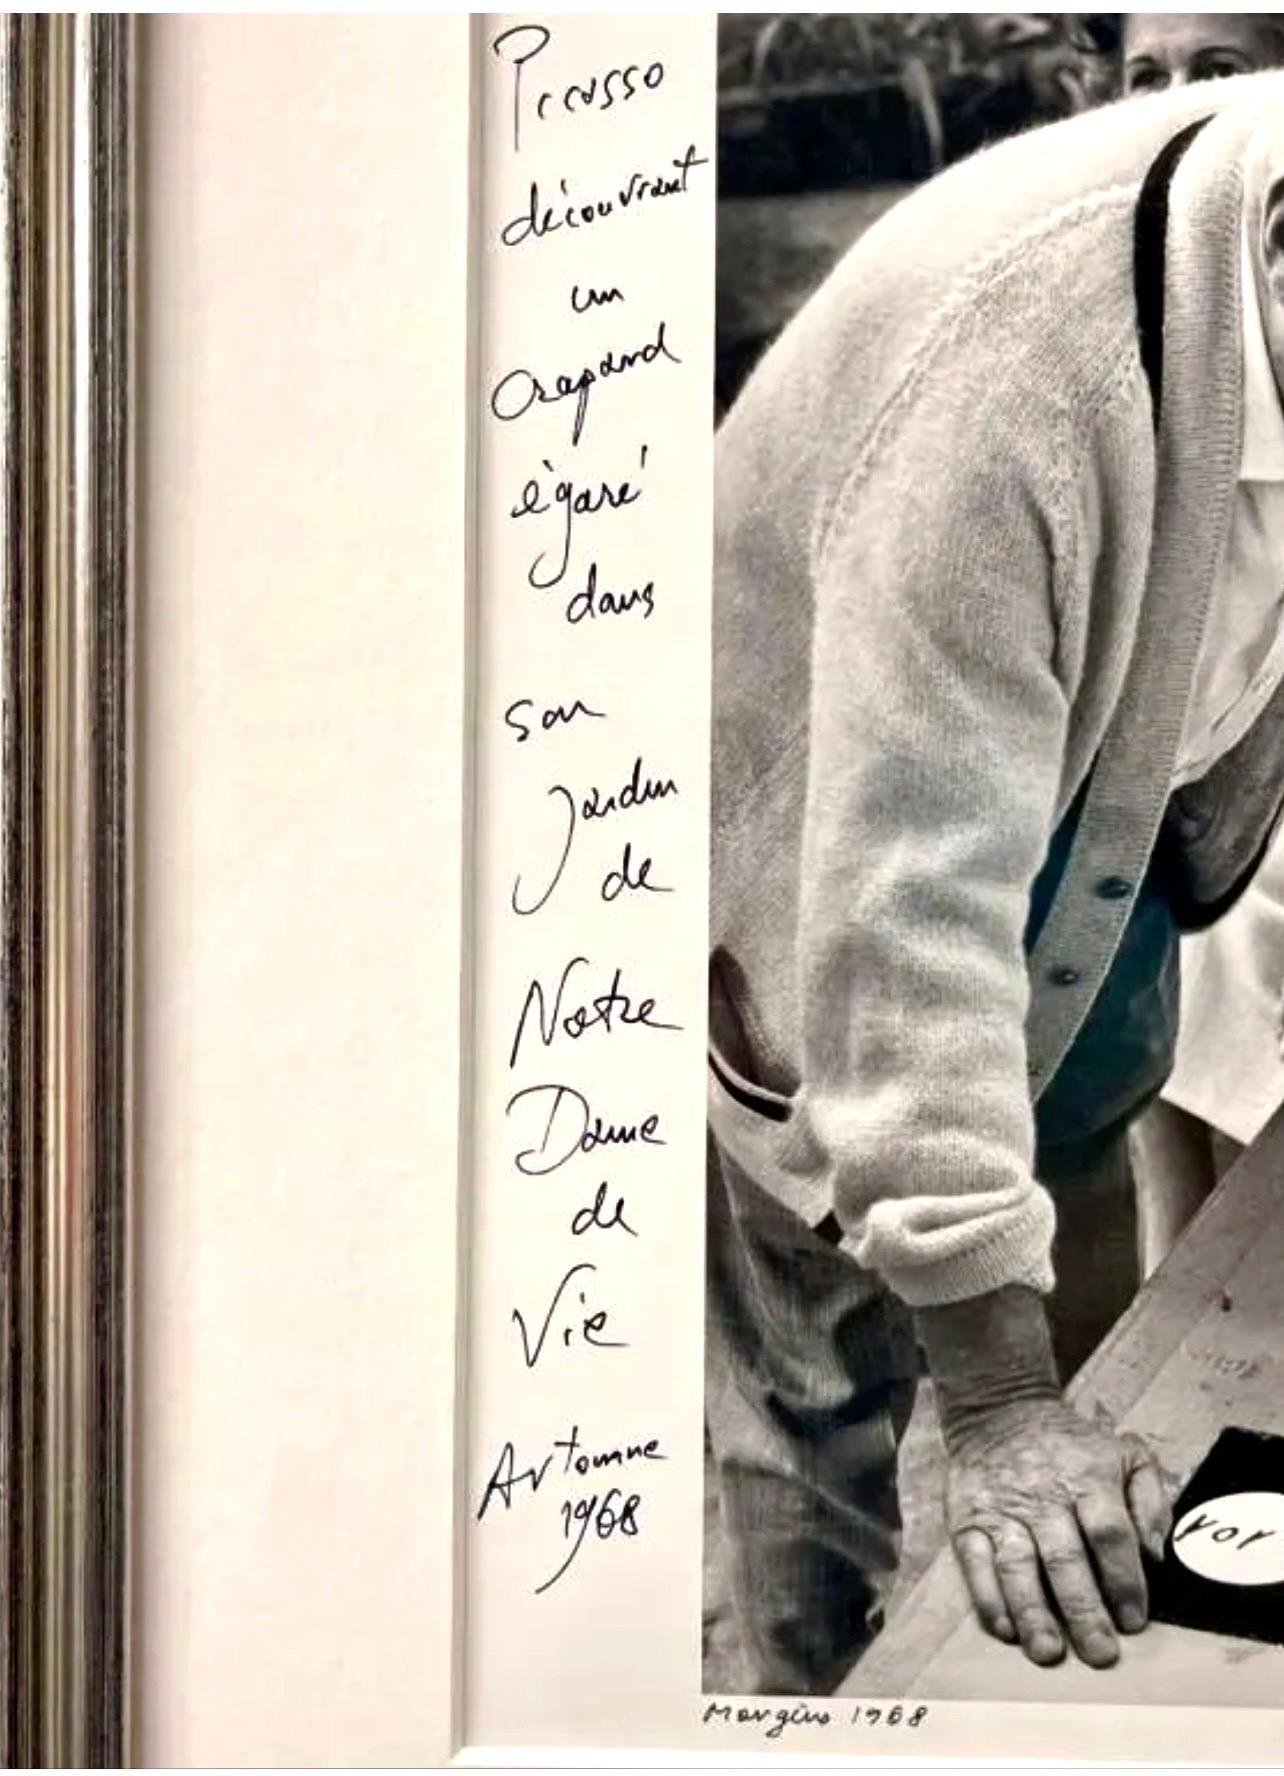 Picasso
découvrant
un
Crapaud
égaré
dans
son
Jardin
de
Notre
Dame
de
Vie
Automne
1968
vor
Mougins 1968